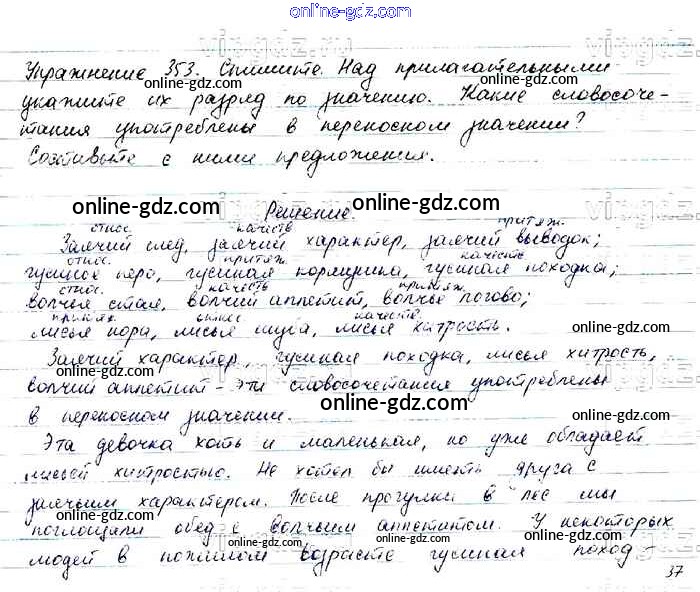 online-gdz.com
Упражнение 353. Спишите. Над прилагательными
укажите их разряд по значению. Какие словосоче-
тания употреблены в переносном значении?
Составьте с ними предложения.
online-gdz.com
online-gdz.com
Решение.
относ. качеств притяж.
Заячий след, заячий характер, заячий выводок;
относ. притяж. качеств
гусиное перо, гусиная кормушка, гусиная походка;
относ. качеств притяж.
волчья стая, волчий аппетит, волчье логово;
притяж. относ качеств.
лисья нора, лисья шуба, лисья хитрость.
online-gdz.com
online-gdz.com
online-gdz.com
Заячий характер, гусиная походка, лисья хитрость,
волчий аппетит - эти словосочетания употреблены
в переносном значении.
online-gdz.com
Эта девочка хоть и маленькая, но уже обладает
лисьей хитростью. Не хотел бы иметь друга с
заячьим характером. После прогулки в лес мы
поглощали обед с волчьим аппетитом. У некоторых
людей в пожилом возрасте гусиная поход-
online-gdz.com
online-gdz.com
online-gdz.com
online-gdz.com
37